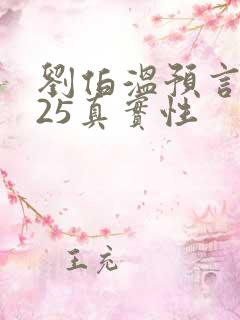 劉伯溫預言
25真實性
王充